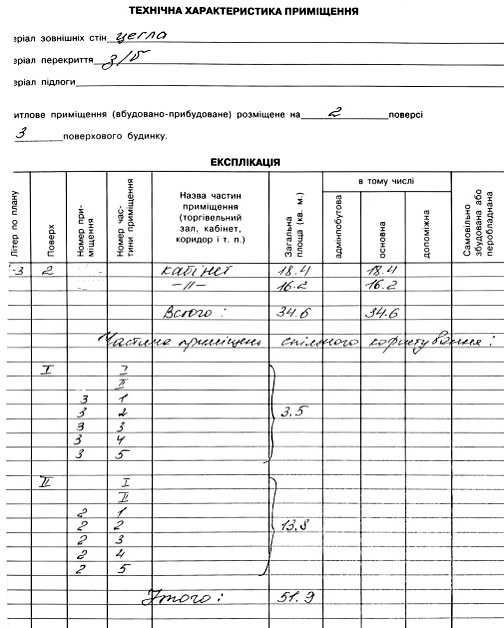 ТЕХНІЧНА ХАРАКТЕРИСТИКА ПРИМІЩЕННЯ
еріал зовнішніх стін цегла
еріал перекриття з/б
еріал підлоги
итлове приміщення (вбудовано-прибудоване) розміщене на 2 поверсі
3 поверхового будинку.
ЕКСПЛІКАЦІЯ
Літер по плану
Поверх
Номер при-
міщення
Номер час-
тини приміщення
Назва частин
приміщення
(торгівельний
зал, кабінет,
коридор і т. п.)
Загальна
площа (кв. м.)
в тому числі
адмінпобутова
основна
допоміжна
Самовільно
збудована або
переобладнана
-3 2 кабінет 18.4 18.4
-//- 16.2 16.2
Всього: 34.6 34.6
Частина приміщень спільного користування:
I I
II
3 1
3 2 3.5
3 3
3 4
3 5
II I
II
2 1
2 2 13.8
2 3
2 4
2 5
Итого: 51.9